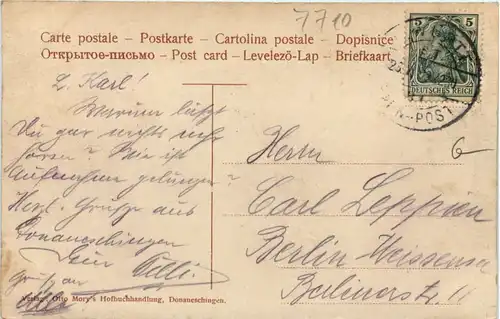 7710
Carte postale – Postkarte – Cartolina postale – Dopisnice
Открытое-письмо – Post card – Levelező-Lap – Briefkaart
5 5
DEUTSCHES REICH
L. Karl!
Warum läßt
Du gar nichts mehr
hören? Wie ist
Aufnahme gelungen?
Herzl. Grüsse aus
Donaueschingen
Dein Olli.
Gruß an
Herrn
Carl Leppien
Berlin-Weissensee
Berlinerstr. 11
6
Verlag: Otto Mory's Hofbuchhandlung, Donaueschingen.